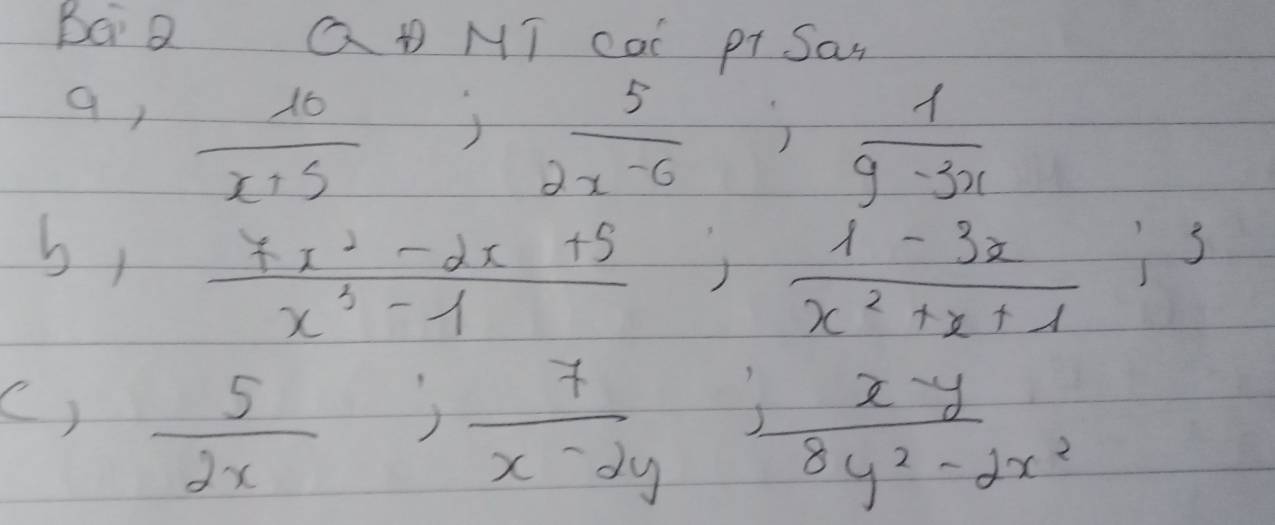 Bài 2 QĐ MT các pt Sau
a, 10/(x+5) ; 5/(2x-6) ; 1/(9-3x)
b, (7x² - 2x + 5)/(x³ - 1) ; (1 - 3x)/(x² + x + 1) ; 3
c, 5/(2x) ; 7/(x - 2y) ; (x - y)/(8y² - 2x²)